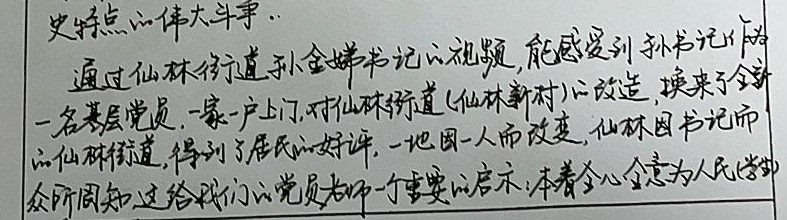 史特点的伟大斗争..
通过仙林街道孙金娣书记的视频,能感受到孙书记作为
一名基层党员,一家一户上门,对仙林街道(仙林新村)的改造,换来了全新
的仙林街道,得到了居民的好评,一地因一人而改变,仙林因书记而
众所周知,这给我们的党员老师一个重要的启示:本着全心全意为人民(学生)